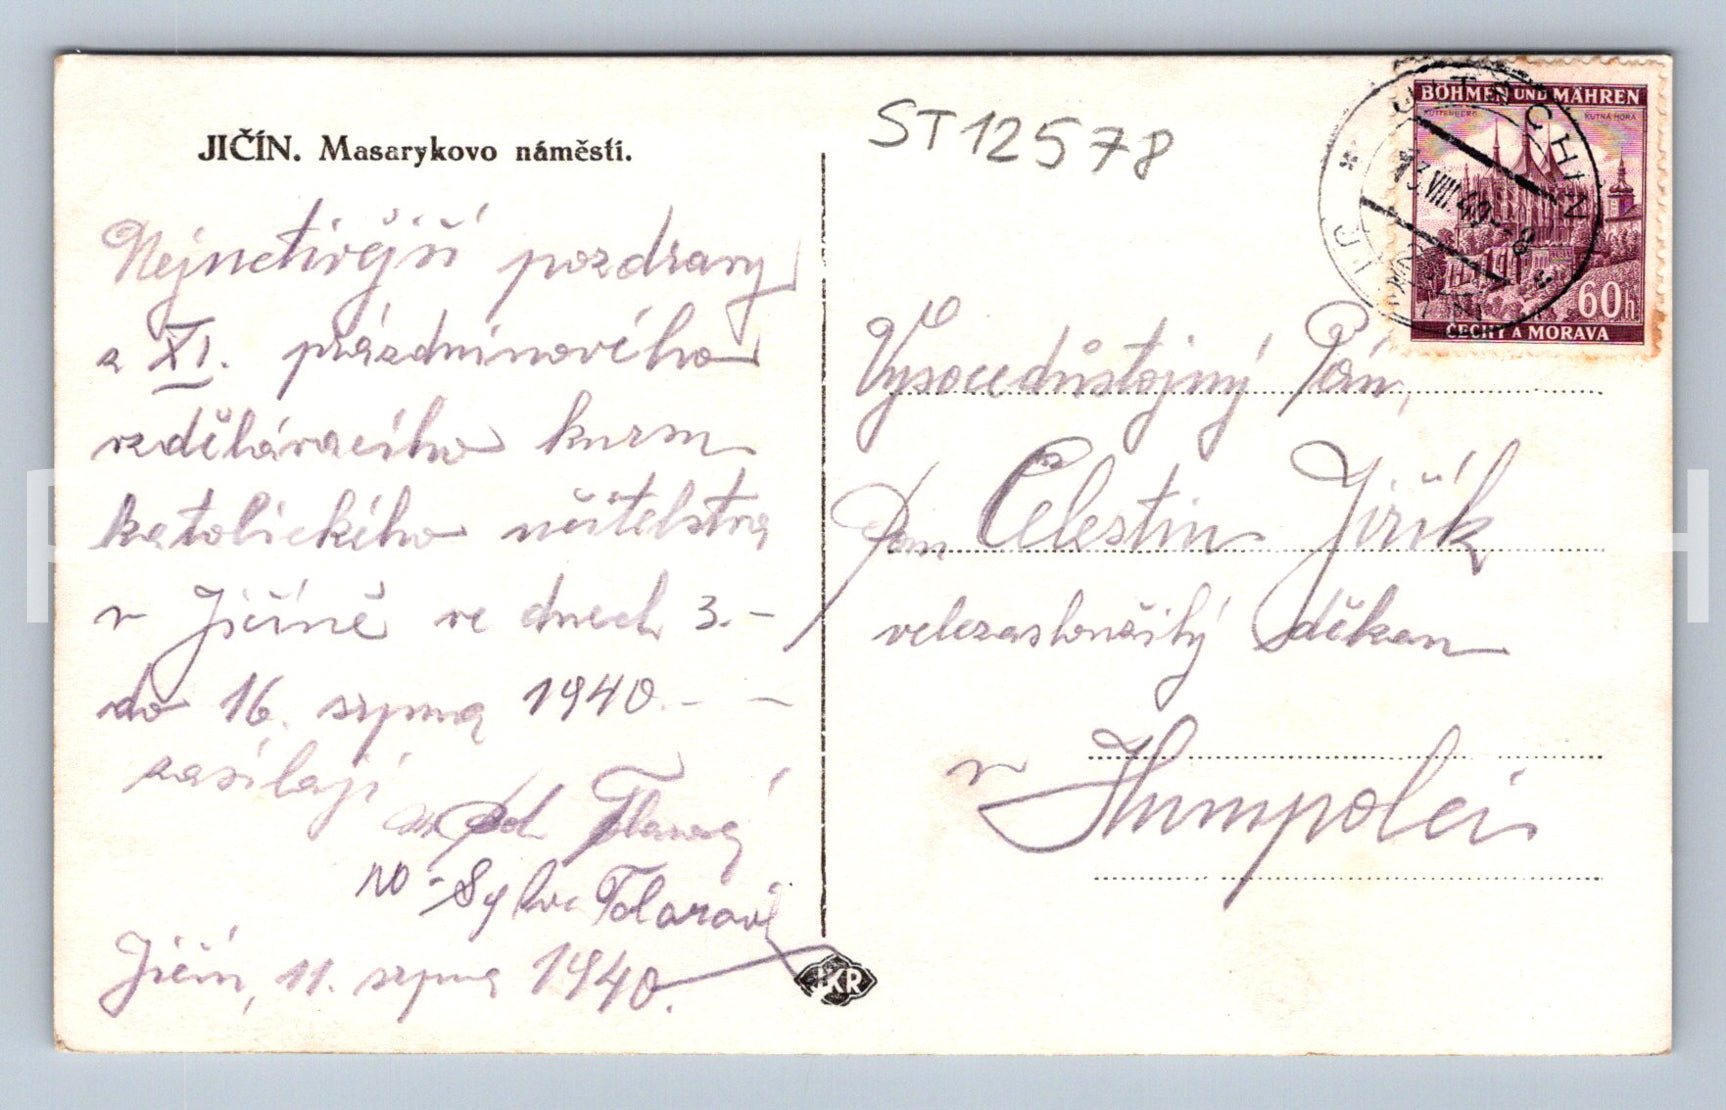 JIČÍN. Masarykovo náměstí.
Nejuctivější pozdravy
z XI. prázdninového
vzdělávacího kursu
katolického učitelstva
v Jičíně ve dnech 3. -
do 16. srpna 1940. - -
zasílají
Tolarová
Tolarová
Jičín, 11. srpna 1940.
ST12578
BÖHMEN UND MÄHREN
KUTTENBERG
KUTNÁ HORA
60h
ČECHY A MORAVA
JITSCHIN
13.VIII.40--8
JIČÍN
Vysocedůstojný Pán,
Pan Celestin Jiřík
velezasloužilý děkan
v Humpolci
JKR
P H